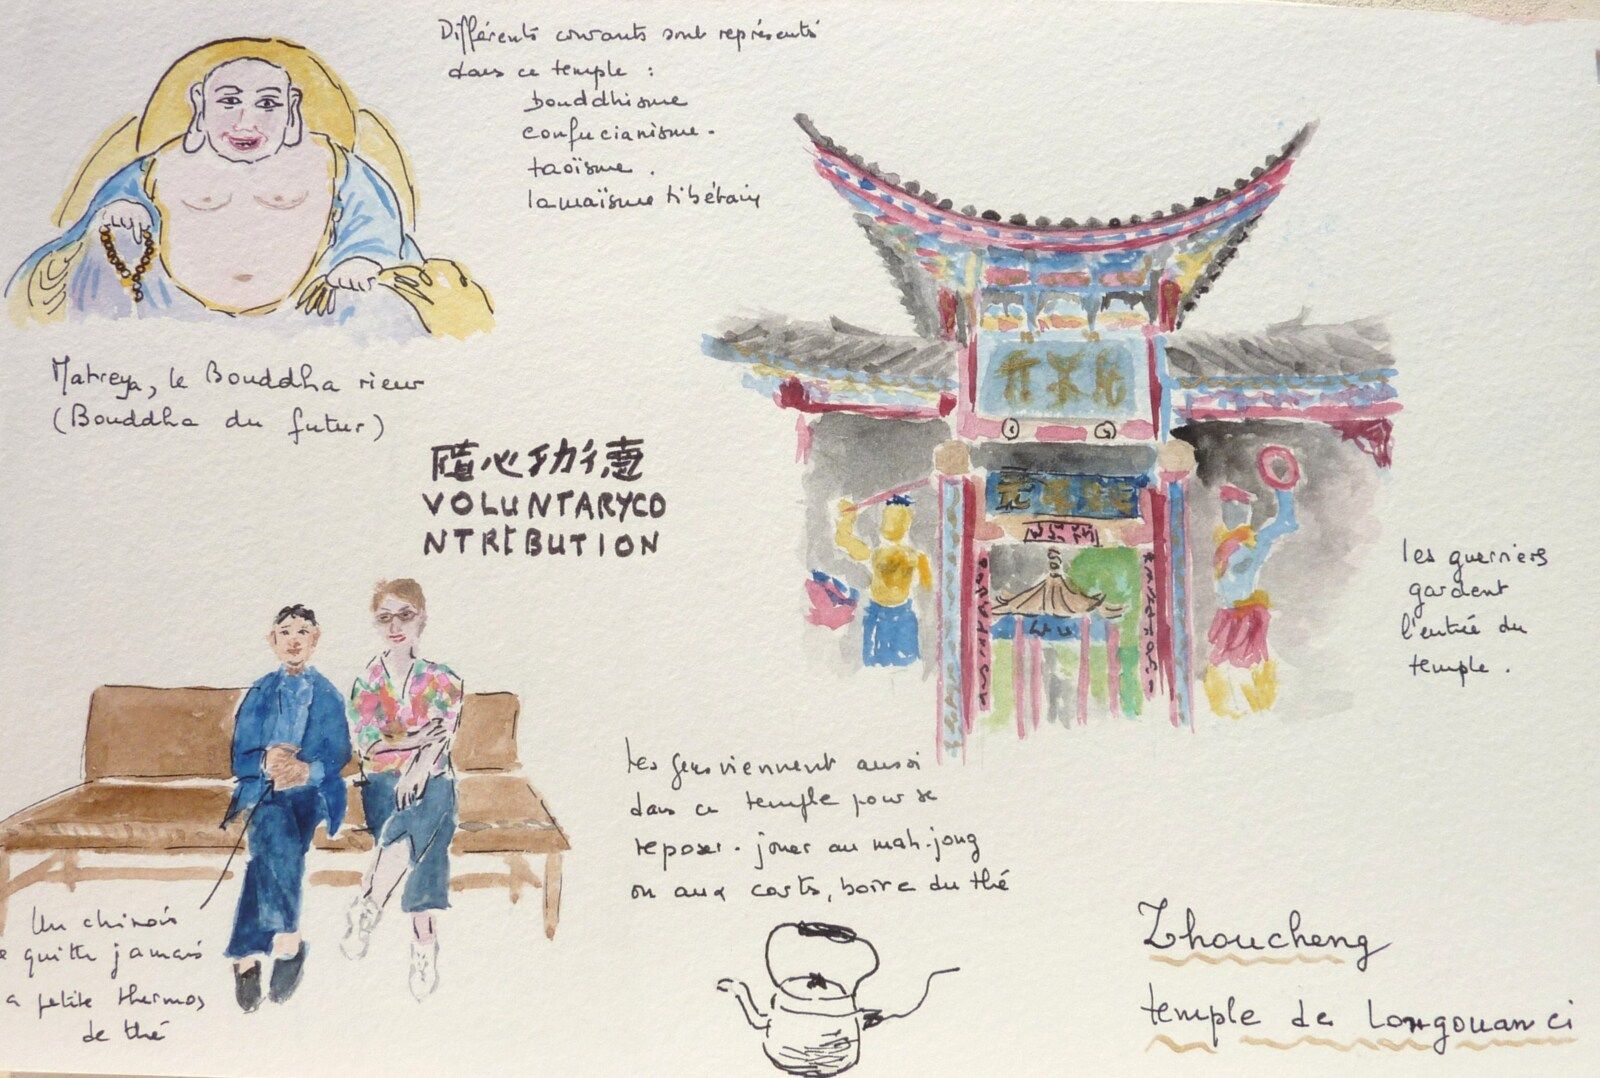 Différents courants sont représentés
dans ce temple :
bouddhisme
confucianisme.
taoïsme.
lamaïsme tibétain
Matreya, le Bouddha rieur
(Bouddha du futur)
隨心功德
VOLUNTARYCO
NTRIBUTION
les guerriers
gardent
l'entrée du
temple.
les gens viennent aussi
dans ce temple pour se
reposer. jouer au mah-jong
ou aux carts, boire du thé
Un chinois
e quitte jamais
a petite thermos
de thé
Zhoucheng
temple de Longouanci